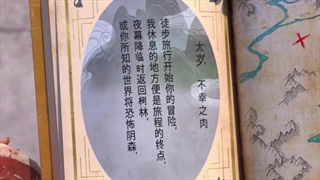 太岁，不幸之肉
徒步旅行开始你的冒险，
我休息的地方便是旅程的终点，
夜幕降临时返回树林，
或你所知的世界将恐怖阴森，